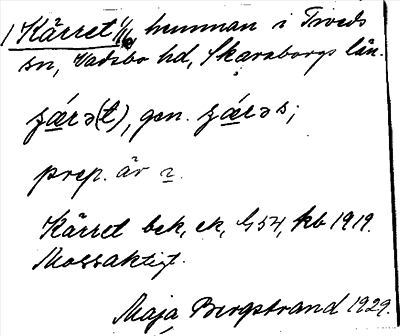 1 Kärret 1/1 hemman i Tiveds
sn, Vadsbo hd, Skaraborgs län.
gen.
prep. är
Kärret bek, ek, G 54, kb 1919.
Mossaktigt.
Maja Bergstrand 1929.